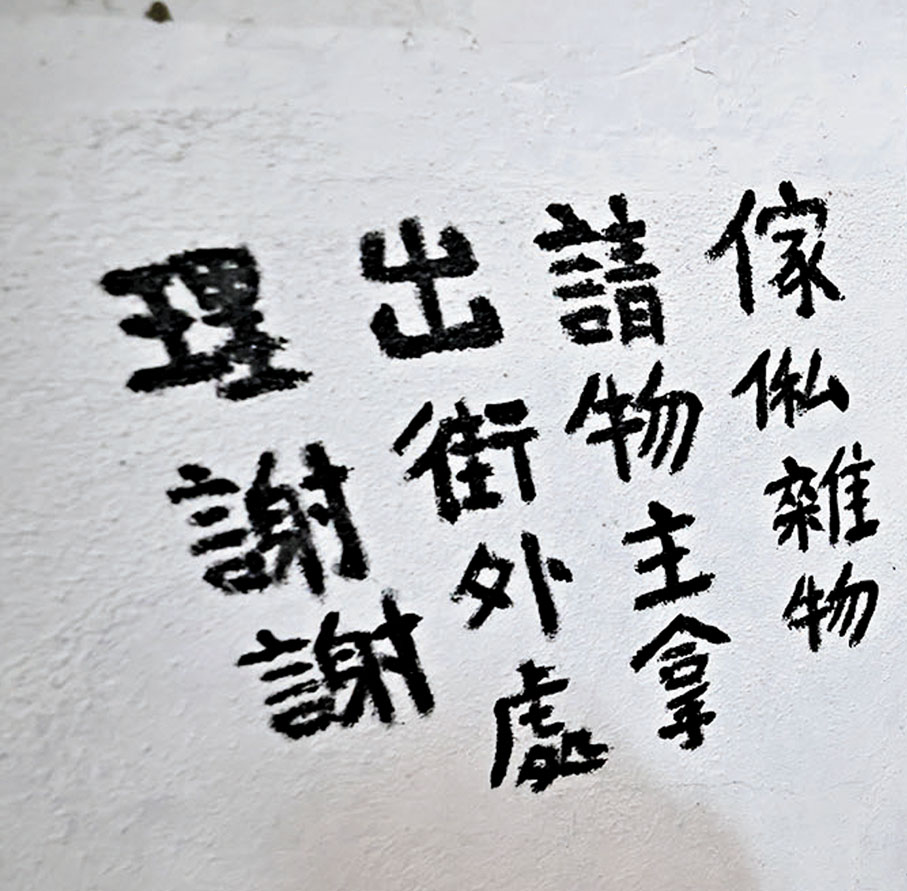 傢俬雜物
請物主拿
出街外處
理謝謝